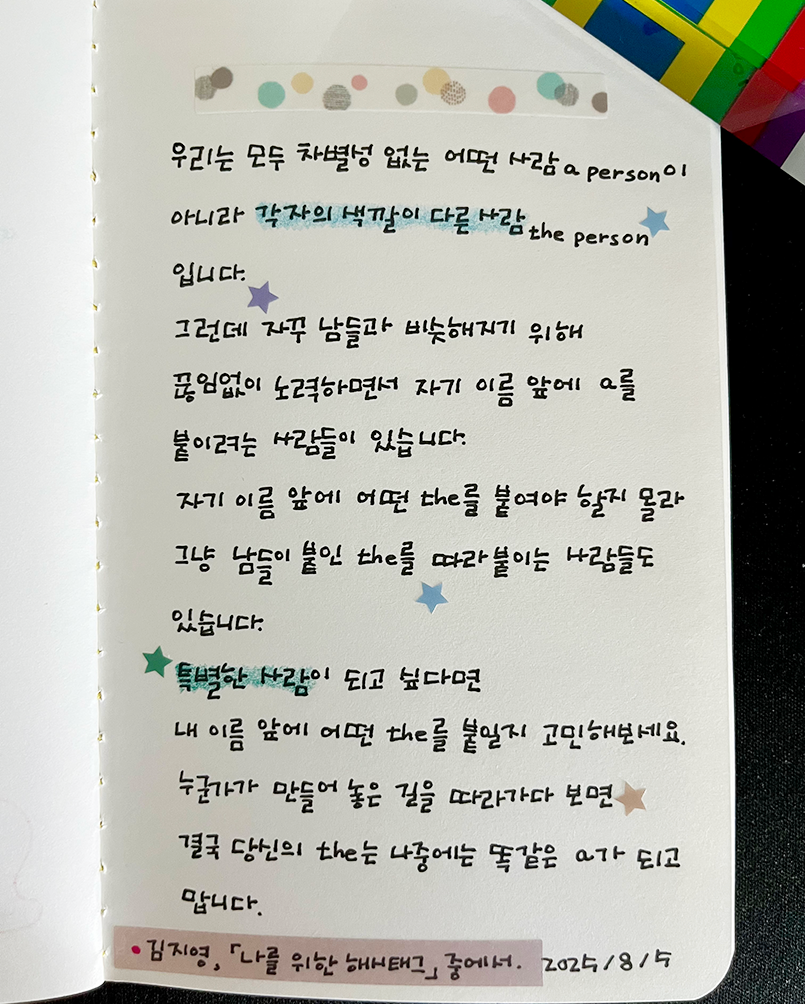 우리는 모두 차별성 없는 어떤 사람 a person이
아니라 각자의 색깔이 다른 사람 the person
입니다.
그런데 자꾸 남들과 비슷해지기 위해
끊임없이 노력하면서 자기 이름 앞에 a를
붙이려는 사람들이 있습니다.
자기 이름 앞에 어떤 the를 붙여야 할지 몰라
그냥 남들이 붙인 the를 따라 붙이는 사람들도
있습니다.
특별한 사람이 되고 싶다면
내 이름 앞에 어떤 the를 붙일지 고민해보세요.
누군가가 만들어 놓은 길을 따라가다 보면
결국 당신의 the는 나중에는 똑같은 a가 되고
맙니다.
• 김지영, 「나를 위한 해시태그」 중에서. 2025/8/5